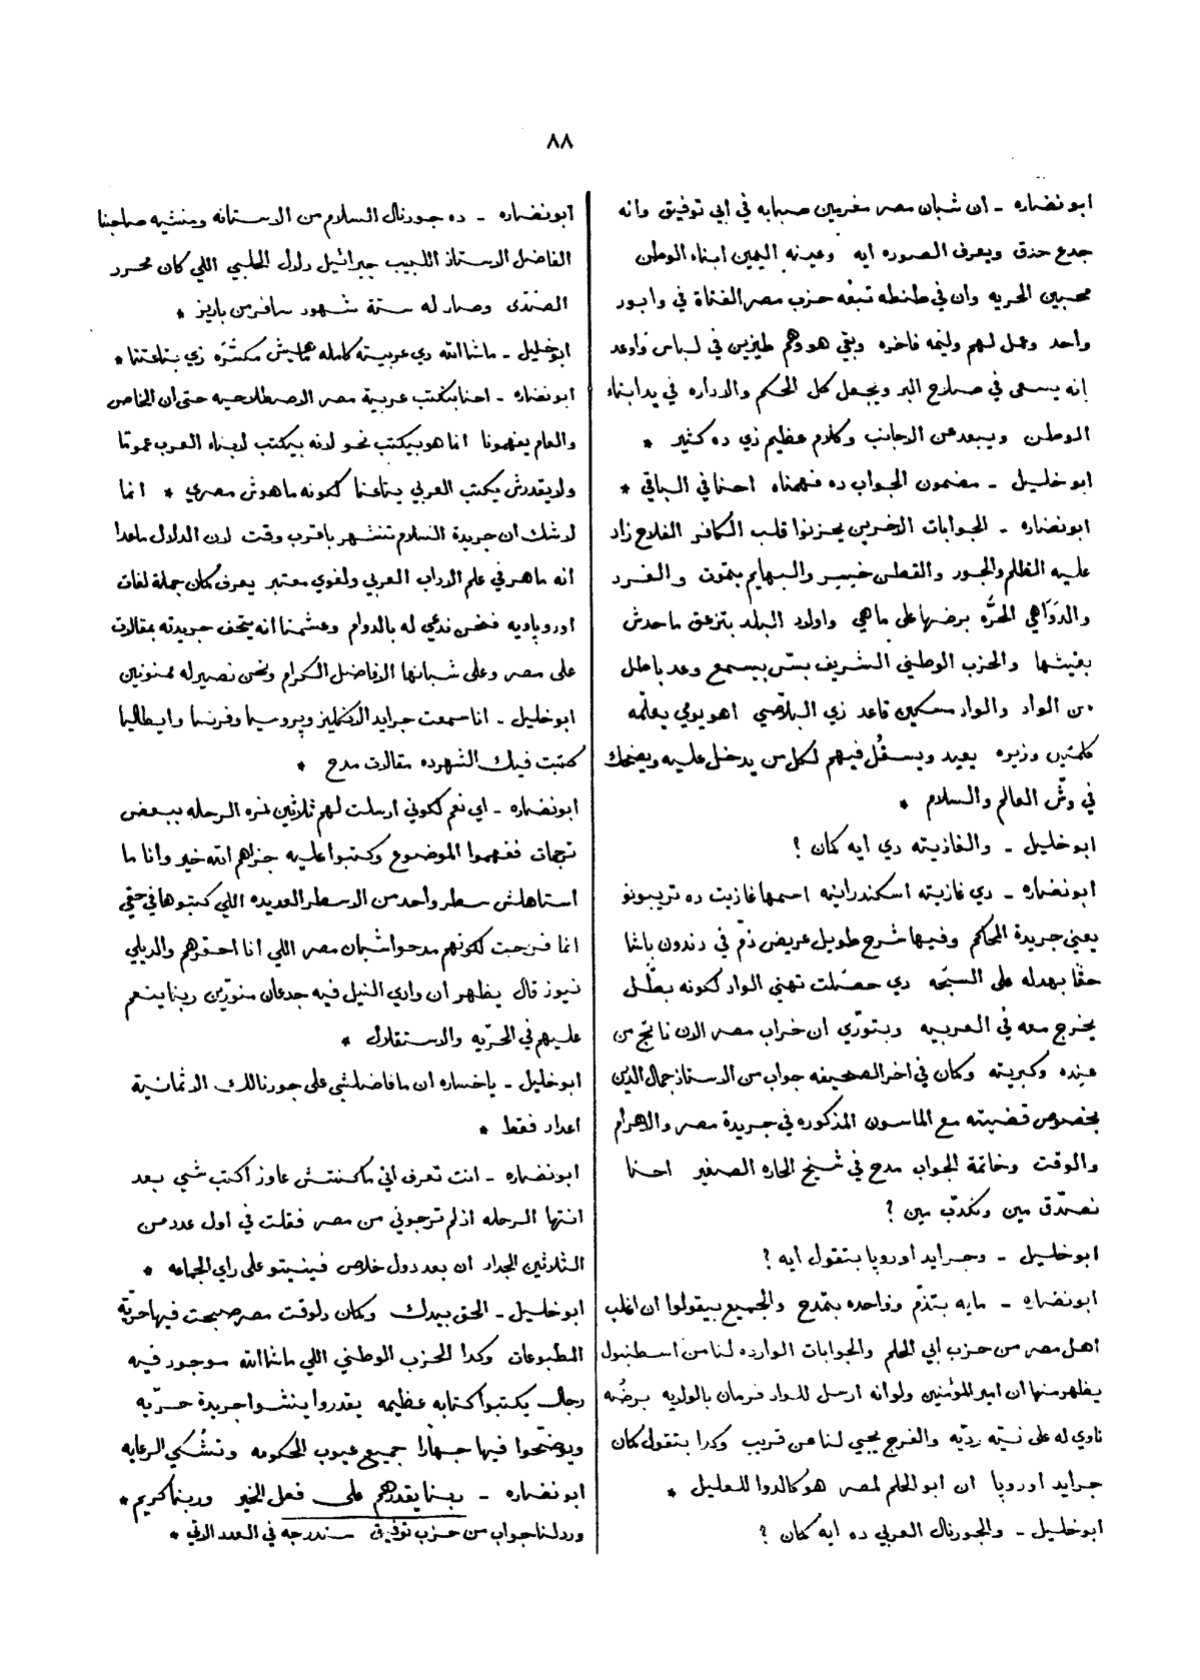 ٨٨
ابو نضاره - ان شبان مصر مغرمين صبابه في ابي توفيق وانه
جدع حذق ويعرف الصوره ايه وعينه اليمين ابناء الوطن
محبين الحريه وان في طنطه تبعه حزب مصر الفتاة في وابور
واحد وعمل لهم وليمه فاخره وبقي هو وهم طيزين في لباس واوعد
انه يسعى في صلاح البر ويجعل كل الحكم والاداره في يد ابناء
الوطن ويبعد عن الاجانب وكلام عظيم زي ده كثير *
ابو خليل - مضمون الجواب ده فهمناه احنا في الباقي *
ابو نضاره - الجوابات الاخرين يحزنوا قلب الكافر الفلاح زاد
عليه الظلم والجور والقطن خيير والبهايم بتموت والفرد
والدواهي الحرّه برضها على ماهي واولاد البلد بتزعق ماحدش
بغيثها والحزب الوطني الشريف بسّ بيسمع وعد باطل
من الواد والواد مسكين قاعد زي البلاّصي اهو يومي يعلّمه
كلمتين وزيره يعيد ويسقُل فيهم لكل من يدخل عليه ويضحك
في وشّ العالم والسلام *
ابو خليل - والغازيته دي ايه كان ؟
ابو نضاره - دي غازيته اسكندرانيه اسمها غازيت ده تريبونو
يعني جريدة المحاكم وفيها شرح طويل عريض ذمّ في دندون باشا
حقا بهدله على السبحه دي حصلت تهني الواد لكونه بطّل
يخرج معه في العربيه وبتورّي ان خراب مصر الان ناتج من
عنده وكبريته وكان في اخر الصحيفه جواب من الاستاذ جمال الدين
بخصوص قضيته مع الماسون المذكوره في جريدة مصر والاهرام
والوقت وخاتمة الجواب مدح في شيخ الحاره الصغير احنا
نصدّق مين ونكدّب مين ؟
ابو خليل - وجرايد اوروپا بتقول ايه ؟
ابو نضاره - مايه بتذّم وواحده بتمدح والجميع بيقولوا ان اغلب
اهل مصر من حزب ابي الحلم والجوابات الوارده لنا من اسطنبول
يظهر منها ان امير المؤمنين ولو انه ارسل للواد فرمان بالولايه برضُه
ناوي له على نيّته رديّه والفرج يجيي لنا عن قريب وكدا بتقول كمان
جرايد اوروپا ان ابو الحلم لمصر هو كالدوا للعليل *
ابو خليل - والجورنال العربي ده ايه كمان ؟
ابو نضاره - ده جورنال السلام من الاستانه ومنشيه صاحبنا
الفاضل الاستاذ اللبيب جبرائيل دلال الحلبي اللي كان محرر
الصّدى وصار له ستة شهور سافر من باريز *
ابو خليل - ماشاالله دي عربيته كامله ماهيش مكسّره زي بتاعتنا *
ابو نضاره - احنا بنكتب عربية مصر الاصطلاحيه حتى ان الخاص
والعام يفهمونا انما هو بيكتب نحو لانه بيكتب لابناء العرب عموما
ولا يقدرش يكتب العربي بتاعنا لكونه ماهوش مصري * انما
لا شك ان جريدة السلام تنشهر باقرب وقت لان الدلال ماعدا
انه ماهر في علم الاداب العربي ولغوي معتبر يعرف كمان جملة لغات
اوروپاويه فنحن ندعي له بالدوام وعشمنا انه يتحف جريدته بمقالات
على مصر وعلى شبانها الافاضل الكرام ونحن نصير له ممنونين
ابو خليل - انا سمعت جرايد الانكليز وپروسيا وفرنسا وايطاليا
كتبت فيك الشهر ده مقالات مدح *
ابو نضاره - اي نعم لكوني ارسلت لهم ثلاثين نمرة الرحله ببعض
ترجمات ففهموا الموضوع وكتبوا عليه جزاهم الله خير وانا ما
استاهلش سطر واحد من الاسطر العديده اللي كتبوها في حقي
انما فرحت لكونهم مدحوا شبان مصر اللي انا احقرهم والديلي
نيوز قال يظهر ان وادي النيل فيه جدعان منوّرين ربنا ينعم
عليهم في الحرّيه والاستقلال *
ابو خليل - يا خساره ان ما فاضلشي على جورنالك الا ثمانية
اعداد فقط *
ابو نضاره - انت تعرف اني ماكنتش عاوز اكتب شي بعد
انتها الرحله اذ لم ترجوني من مصر فقلت في اول عدد من
الثلاثين الجداد ان بعد دول خلاص فينبتو على راي الجماعه *
ابو خليل - الحق بيدك وكمان دلوقت مصر صبحت فيها حريّة
المطبوعات وكدا الحزب الوطني اللي ماشاالله موجود فيه
رجال يكتبوا كتابه عظيمه يقدروا ينشوا جريدة حرّيه
ويوضّحوا فيها جهارا جميع عيوب الحكومه وتشكي الرعايه
ابو نضاره - ربنا يقدرهم على فعل الخير وربنا كريم *
ورد لنا جواب من حزب توفيق سندرجه في العدد الاتي *